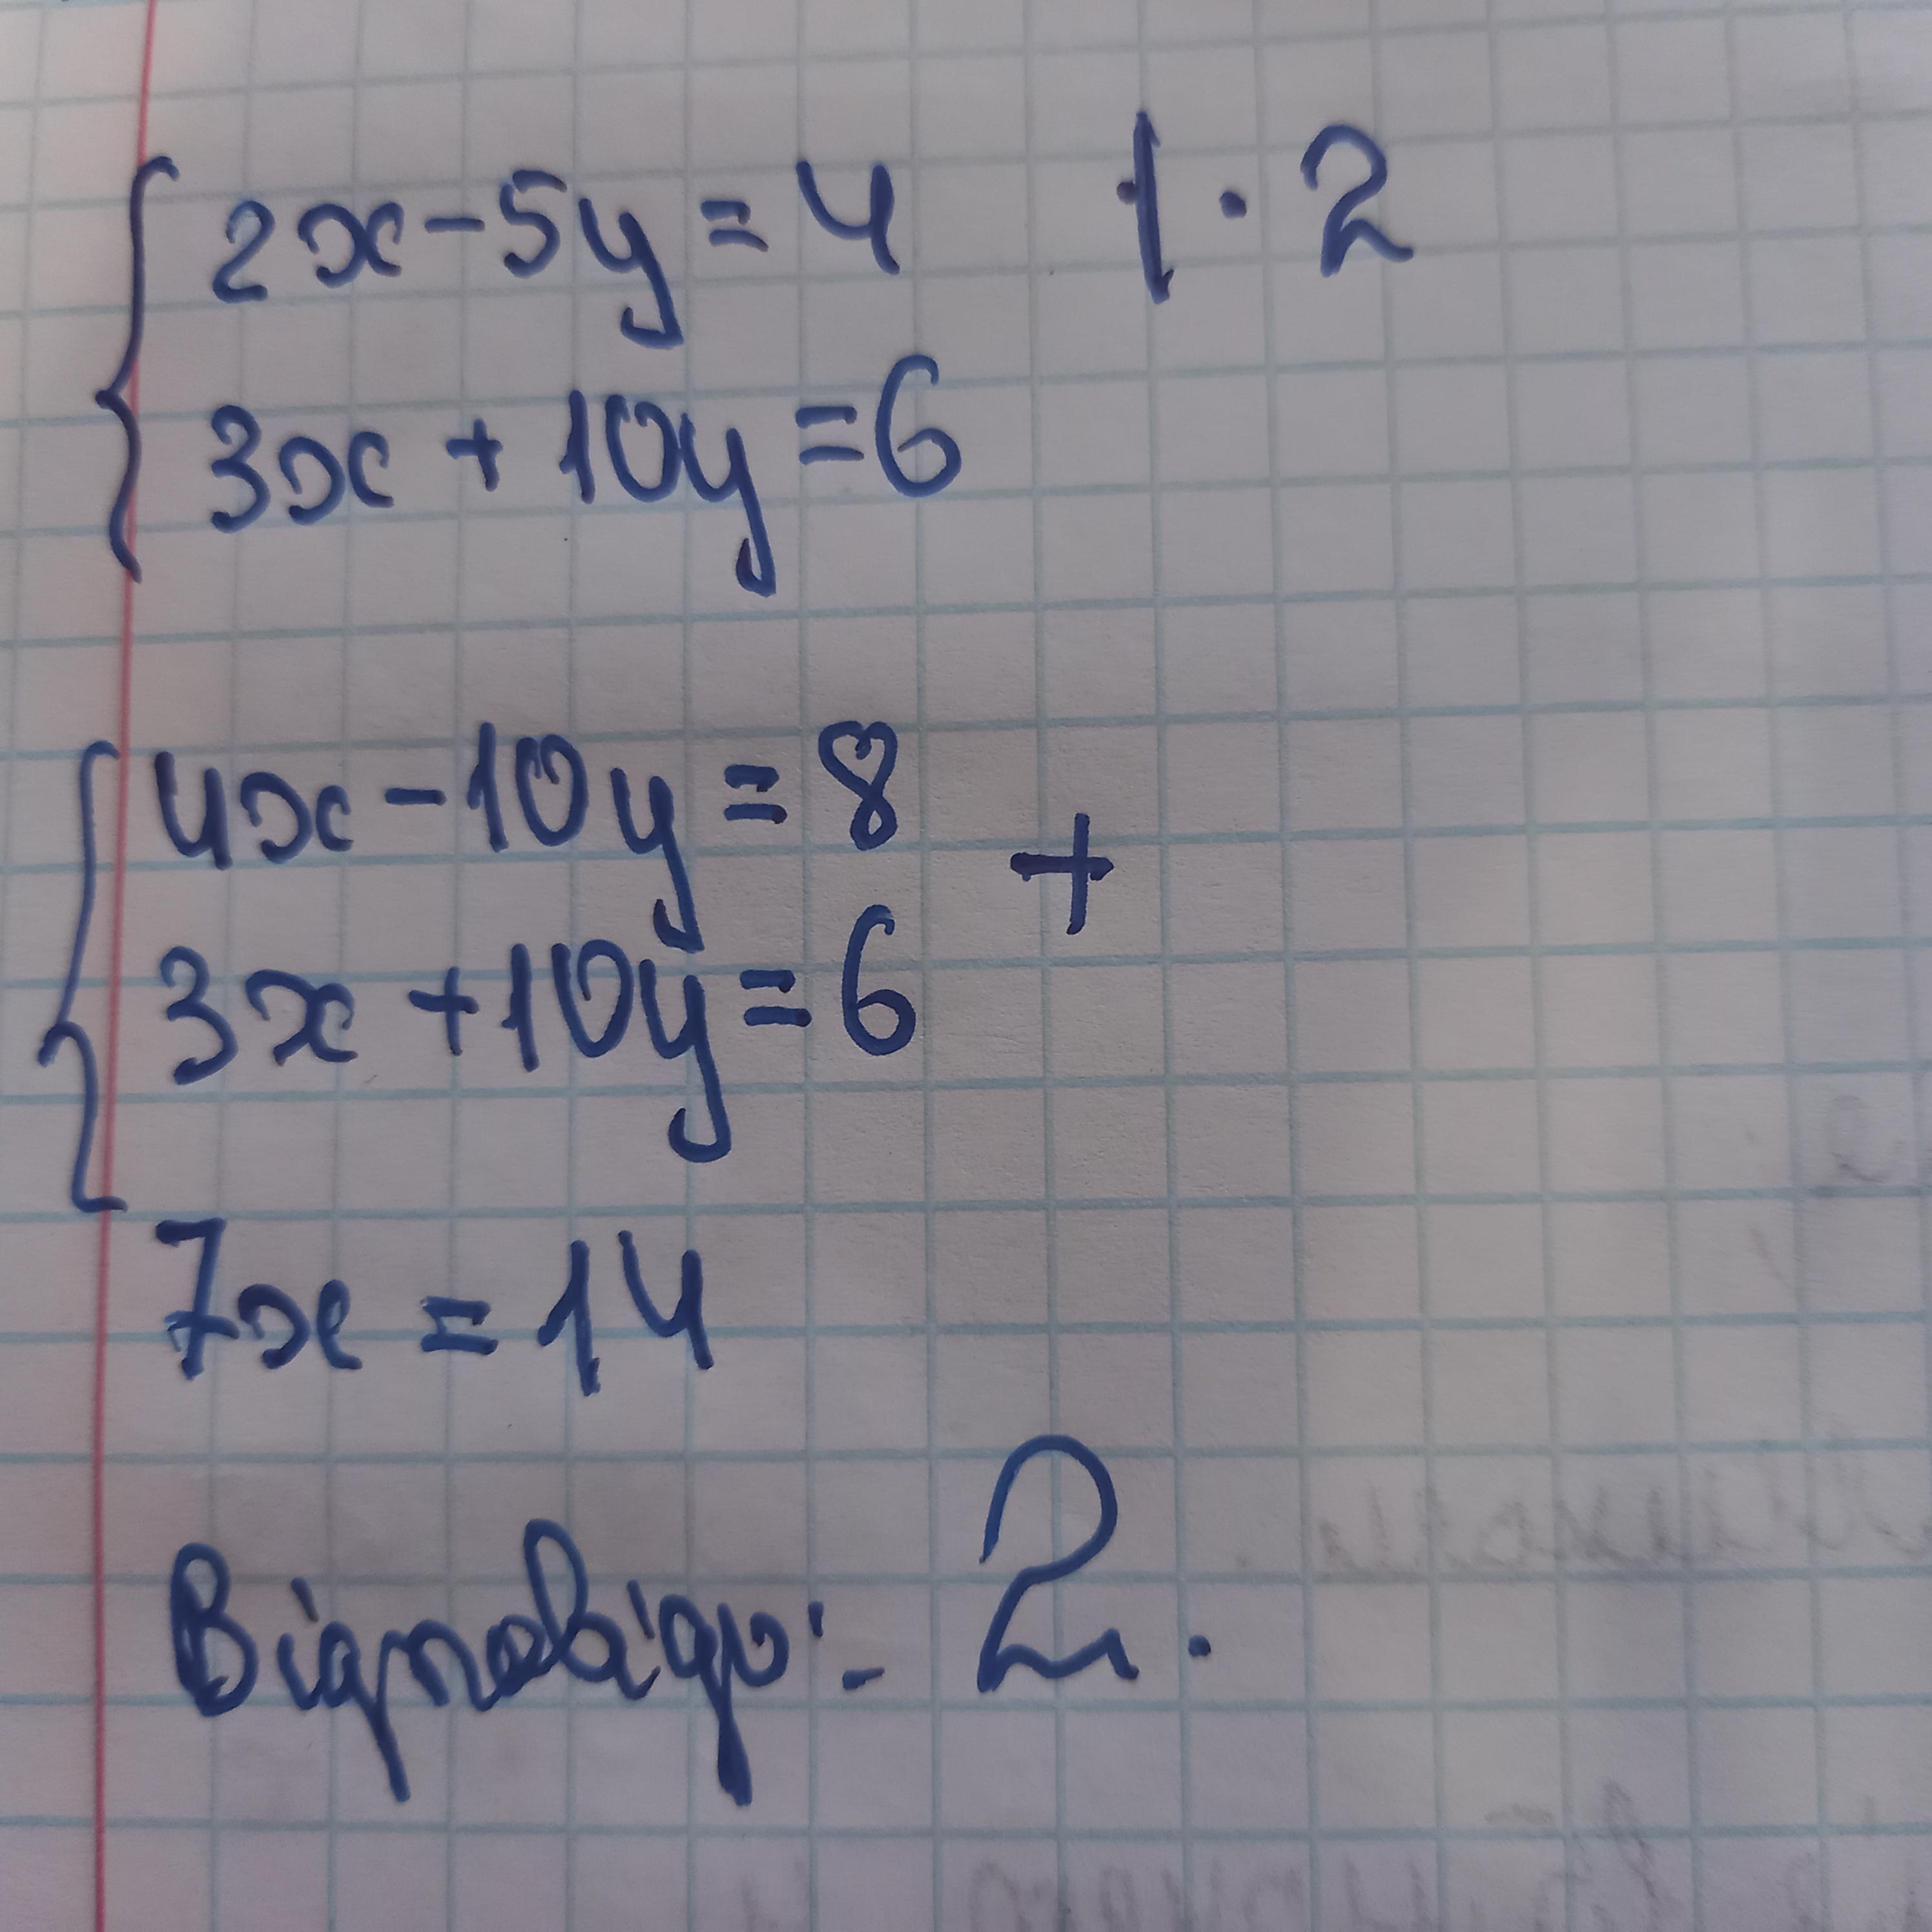 2x-5y=4 | · 2
3x + 10y=6
4x-10y=8
+
3x+10y=6
7x=14
Відповідь: 2.